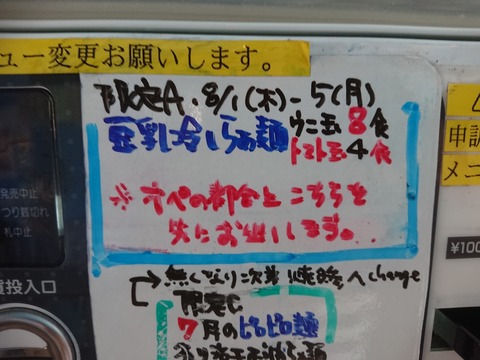 ュー変更お願いします。
限定A 8/1(木)-5(月)
豆乳冷しらぁ麺 ウニ玉 8食
トマト玉 4食
※オペの都合上こちらを
先にお出しします。
→無くなり次第 焼豚 へchange
限定C
7月のピロピロ麺
発売中止
つり銭切れ
札中止
投入口
申訳
メニ
¥100